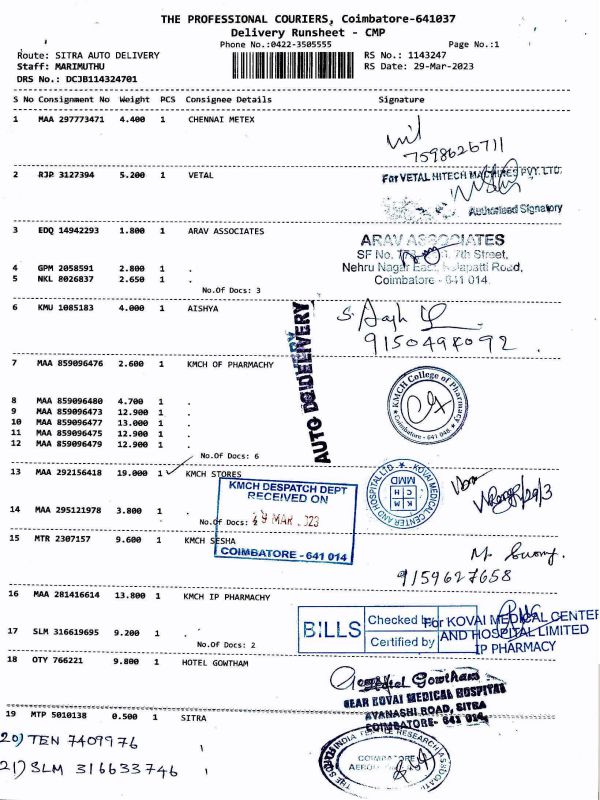 THE PROFESSIONAL COURIERS, Coimbatore-641037
Delivery Runsheet - CMP
Phone No.:0422-3505555 Page No.:1
Route: SITRA AUTO DELIVERY RS No.: 1143247
Staff: MARIMUTHU RS Date: 29-Mar-2023
DRS No.: DCJB114324701
S No Consignment No Weight PCS Consignee Details Signature
1 MAA 297773471 4.400 1 CHENNAI METEX
7598626711
2 RJP 3127394 5.200 1 VETAL
For VETAL HITECH MACHINES PVT. LTD.
Authorised Signatory
3 EDQ 14942293 1.800 1 ARAV ASSOCIATES
ARAV ASSOCIATES
SF No. 7th Street,
Nehru Nagar East, Kalapatti Road,
Coimbatore - 641 014.
4 GPM 2058591 2.800 1 .
5 NKL 8026837 2.650 1 .
No.Of Docs: 3
6 KMU 1085183 4.000 1 AISHYA
9150494092
AUTO DELIVERY
7 MAA 859096476 2.600 1 KMCH OF PHARMACHY
KMCH College of Pharmacy
Coimbatore - 641 048
8 MAA 859096480 4.700 1 .
9 MAA 859096473 12.900 1 .
10 MAA 859096477 13.000 1 .
11 MAA 859096475 12.900 1 .
12 MAA 859096479 12.900 1 .
No.Of Docs: 6
13 MAA 292156418 19.000 1 KMCH STORES
KMCH DESPATCH DEPT
RECEIVED ON
29 MAR 2023
COIMBATORE - 641 014
KOVAI MEDICAL CENTER AND HOSPITAL LTD
KMCH
14 MAA 295121978 3.800 1 .
No.Of Docs: 2
15 MTR 2307157 9.600 1 KMCH SESHA
9159627658
16 MAA 281416614 13.800 1 KMCH IP PHARMACHY
BILLS
Checked by
Certified by
For KOVAI MEDICAL CENTER
AND HOSPITAL LIMITED
IP PHARMACY
17 SLM 316619695 9.200 1 .
No.Of Docs: 2
18 OTY 766221 9.800 1 HOTEL GOWTHAM
Hotel Gowtham
NEAR KOVAI MEDICAL HOSPITAL
AVANASHI ROAD, SITRA
COIMBATORE- 641 014.
19 MTP 5010138 0.500 1 SITRA
20) TEN 7409976 1
21) SLM 316633746 1